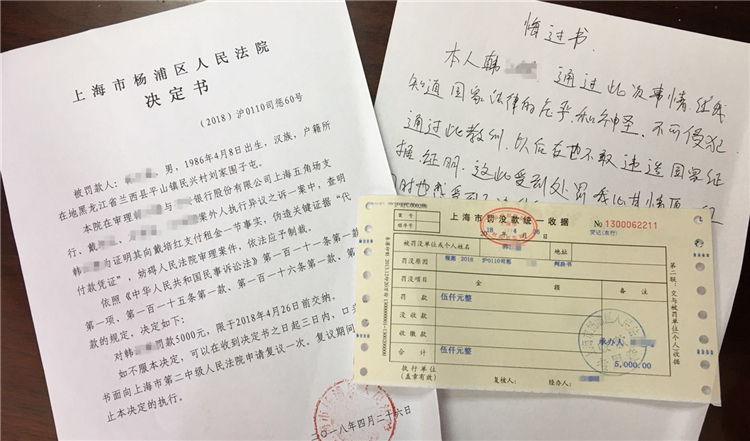 上海市杨浦区人民法院
决定书
（2018）沪0110司惩60号
被罚款人：
，男，1986年4月8日出生，汉族，户籍所
在地黑龙江省兰西县平山镇民兴村刘家围子屯。
本院在审理
与
银行股份有限公司上海五角场支
行、戴
案外人执行异议之诉一案中，查明
韩
为证明其向戴培红支付租金一节事实，伪造关键证据“代
付款凭证”，妨碍人民法院审理案件，依法应予制裁。
依照《中华人民共和国民事诉讼法》第一百一十一条第一款
第一项、第一百一十五条第一款、第一百一十六条第一款、第
款的规定，决定如下：
对韩
罚款5000元，限于2018年4月26日前交纳。
如不服本决定，可以在收到决定书之日起三日内，口
书面向上海市第二中级人民法院申请复议一次。复议期间
止本决定的执行。
二〇一八年四月二十六日
悔过书.
本人韩
通过此次事情
知道国家法律的
和神圣.不可侵犯.
通过此教训.以后在也不敢违造国家证
据证明.
受到处罚
上海市罚没款统一收据
No 1300062211
18 年 4 月
被罚没单位或个人姓名
地址
罚没原因
2018
沪0110司惩
罚没项目
金
额
备注
罚款
伍仟元整
没收款
收缴款
合计
伍仟元整
承办人：
5,000.00
执行单位
（盖章有效）
复核人：
经办人：
第二联：交与被罚单位（个人）收据